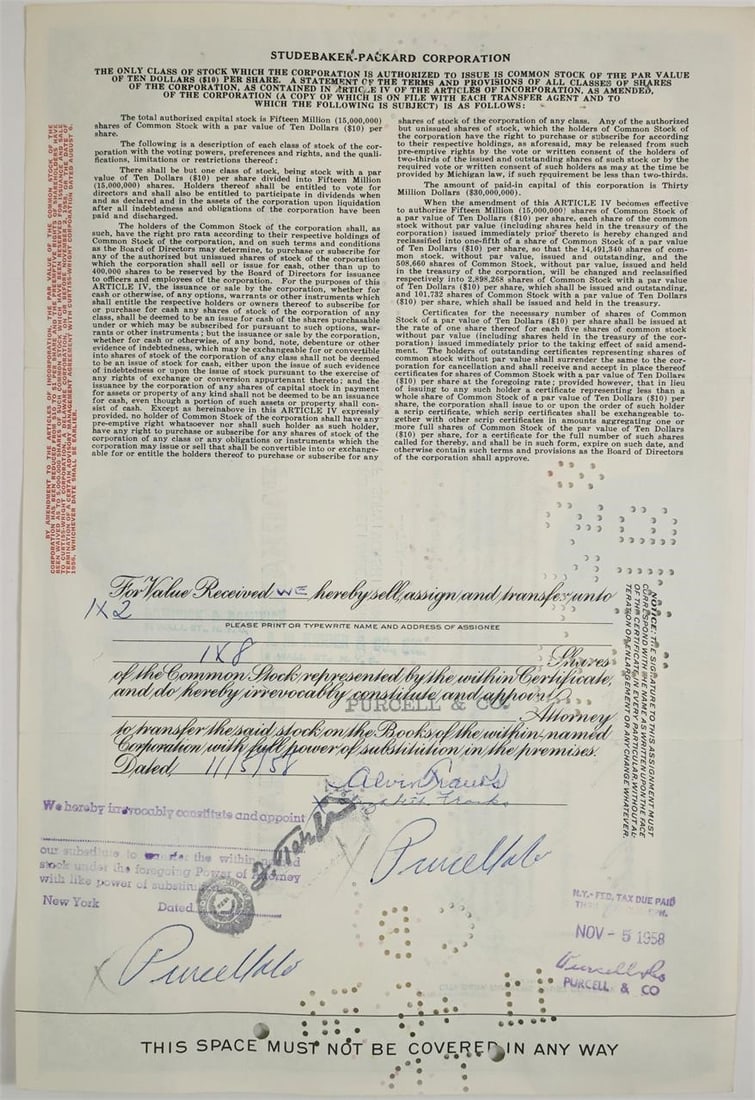 STUDEBAKER-PACKARD CORPORATION
THE ONLY CLASS OF STOCK WHICH THE CORPORATION IS AUTHORIZED TO ISSUE IS COMMON STOCK OF THE PAR VALUE
OF TEN DOLLARS ($10) PER SHARE. A STATEMENT OF THE TERMS AND PROVISIONS OF ALL CLASSES OF SHARES
OF THE CORPORATION, AS CONTAINED IN ARTICLE IV OF THE ARTICLES OF INCORPORATION, AS AMENDED,
OF THE CORPORATION (A COPY OF WHICH IS ON FILE WITH EACH TRANSFER AGENT AND TO
WHICH THE FOLLOWING IS SUBJECT) IS AS FOLLOWS:
The total authorized capital stock is Fifteen Million (15,000,000)
shares of Common Stock with a par value of Ten Dollars ($10) per
share.
The following is a description of each class of stock of the cor-
poration with the voting powers, preferences and rights, and the quali-
fications, limitations or restrictions thereof:
There shall be but one class of stock, being stock with a par
value of Ten Dollars ($10) per share divided into Fifteen Million
(15,000,000) shares. Holders thereof shall be entitled to vote for
directors and shall also be entitled to participate in dividends when
and as declared and in the assets of the corporation upon liquidation
after all indebtedness and obligations of the corporation have been
paid and discharged.
The holders of the Common Stock of the corporation shall, as
such, have the right pro rata according to their respective holdings of
Common Stock of the corporation, and on such terms and conditions
as the Board of Directors may determine, to purchase or subscribe for
any of the authorized but unissued shares of stock of the corporation
which the corporation shall sell or issue for cash, other than up to
400,000 shares to be reserved by the Board of Directors for issuance
to officers and employees of the corporation. For the purposes of this
ARTICLE IV, the issuance or sale by the corporation, whether for
cash or otherwise, of any options, warrants or other instruments which
shall entitle the respective holders or owners thereof to subscribe for
or purchase for cash any shares of stock of the corporation of any
class, shall be deemed to be an issue for cash of the shares purchasable
under or which may be subscribed for pursuant to such options, war-
rants or other instruments; but the issuance or sale by the corporation,
whether for cash or otherwise, of any bond, note, debenture or other
evidence of indebtedness, which may be exchangeable for or convertible
into shares of stock of the corporation of any class shall not be deemed
to be an issue of stock for cash, either upon the issue of such evidence
of indebtedness or upon the issue of stock pursuant to the exercise of
any rights of exchange or conversion appurtenant thereto; and the
issuance by the corporation of any shares of capital stock in payment
for assets or property of any kind shall not be deemed to be an issuance
for cash, even though a portion of such assets or property shall con-
sist of cash. Except as hereinabove in this ARTICLE IV expressly
provided, no holder of Common Stock of the corporation shall have any
pre-emptive right whatsoever nor shall such holder as such holder,
have any right to purchase or subscribe for any shares of stock of the
corporation of any class or any obligations or instruments which the
corporation may issue or sell that shall be convertible into or exchange-
able for or entitle the holders thereof to purchase or subscribe for any
shares of stock of the corporation of any class. Any of the authorized
but unissued shares of stock, which the holders of Common Stock of
the corporation have the right to purchase or subscribe for according
to their respective holdings, as aforesaid, may be released from such
pre-emptive rights by the vote or written consent of the holders of
two-thirds of the issued and outstanding shares of such stock or by the
required vote or written consent of such holders as may at the time be
provided by Michigan law, if such requirement be less than two-thirds.
The amount of paid-in capital of this corporation is Thirty
Million Dollars ($30,000,000).
When the amendment of this ARTICLE IV becomes effective
to authorize Fifteen Million (15,000,000) shares of Common Stock of
a par value of Ten Dollars ($10) per share, each share of the common
stock without par value (including shares held in the treasury of the
corporation) issued immediately prior thereto is hereby changed and
reclassified into one-fifth of a share of Common Stock of a par value
of Ten Dollars ($10) per share, so that the 14,491,340 shares of com-
mon stock, without par value, issued and outstanding, and the
508,660 shares of common stock, without par value, issued and held
in the treasury of the corporation, will be changed and reclassified
respectively into 2,898,268 shares of Common Stock with a par value
of Ten Dollars ($10) per share, which shall be issued and outstanding,
and 101,732 shares of Common Stock with a par value of Ten Dollars
($10) per share, which shall be issued and held in the treasury.
Certificates for the necessary number of shares of Common
Stock of a par value of Ten Dollars ($10) per share shall be issued at
the rate of one share thereof for each five shares of common stock
without par value (including shares held in the treasury of the cor-
poration) issued immediately prior to the taking effect of said amend-
ment. The holders of outstanding certificates representing shares of
common stock without par value shall surrender the same to the cor-
poration for cancellation and shall receive and accept in place thereof
certificates for shares of Common Stock of a par value of Ten Dollars
($10) per share at the foregoing rate; provided however, that in lieu
of issuing to any such holder a certificate representing less than a
whole share of Common Stock of a par value of Ten Dollars ($10) per
share, the corporation shall issue to or upon the order of such holder
a scrip certificate, which scrip certificates shall be exchangeable to-
gether with other scrip certificates in amounts aggregating one or
more full shares of Common Stock of the par value of Ten Dollars
($10) per share, for a certificate for the full number of such shares
called for thereby, and shall be in such form, expire on such date, and
otherwise contain such terms and provisions as the Board of Directors
of the corporation shall approve.
BY AMENDMENT TO THE ARTICLES OF INCORPORATION, THE PAR VALUE OF THE COMMON STOCK OF THE
CORPORATION HAS BEEN REDUCED FROM $10 TO $1 PER SHARE AND THE PREEMPTIVE RIGHTS OF SHAREHOLDERS HAVE
BEEN WAIVED AS TO 5,000,000 SHARES OF SUCH COMMON STOCK WHICH HAVE BEEN RESERVED FOR ISSUANCE AND SALE
TO CURTISS-WRIGHT CORPORATION, A DELAWARE CORPORATION, ON OR BEFORE NOVEMBER 2, 1958, OR THE DATE OF
TERMINATION OF A CERTAIN MANAGEMENT AGREEMENT WITH CURTISS-WRIGHT CORPORATION DATED AUGUST 6,
1956, WHICHEVER DATE SHALL BE EARLIER.
For Value Received WE hereby sell, assign and transfer unto
1X2
PLEASE PRINT OR TYPEWRITE NAME AND ADDRESS OF ASSIGNEE
1X8 Shares
of the Common Stock represented by the within Certificate,
and do hereby irrevocably constitute and appoint
PURCELL & CO.
Attorney
to transfer the said stock on the Books of the within-named
Corporation with full power of substitution in the premises.
Dated, 11/5/58
Alvin Franks
Elizabeth Franks
NOTICE: THE SIGNATURE TO THIS ASSIGNMENT MUST
CORRESPOND WITH THE NAME AS WRITTEN UPON THE FACE
OF THE CERTIFICATE IN EVERY PARTICULAR, WITHOUT AL-
TERATION OR ENLARGEMENT OR ANY CHANGE WHATEVER.
We hereby irrevocably constitute and appoint
our substitute to transfer the within named
stock under the foregoing Power of Attorney
with like power of substitution
New York Dated
Purcell & Co
Purcell & Co
N.Y.- FED. TAX DUE PAID
NOV - 5 1958
Purcell & Co
PURCELL & CO
THIS SPACE MUST NOT BE COVERED IN ANY WAY